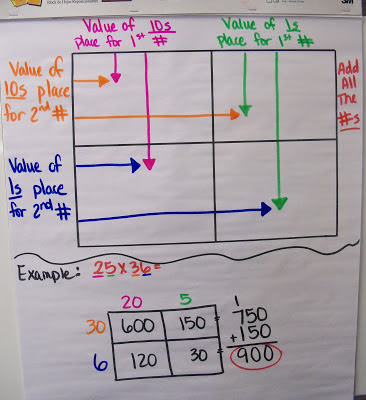 3M
Value of 10s
place for 1st #
Value of 1s
place for 1st #
Value of
10s place
for 2nd #
Add
All
The
#s
Value of
1s place
for 2nd #
Example: 25 x 36 =
20 5
30 600 150 = 750
6 120 30 = +150
1
900